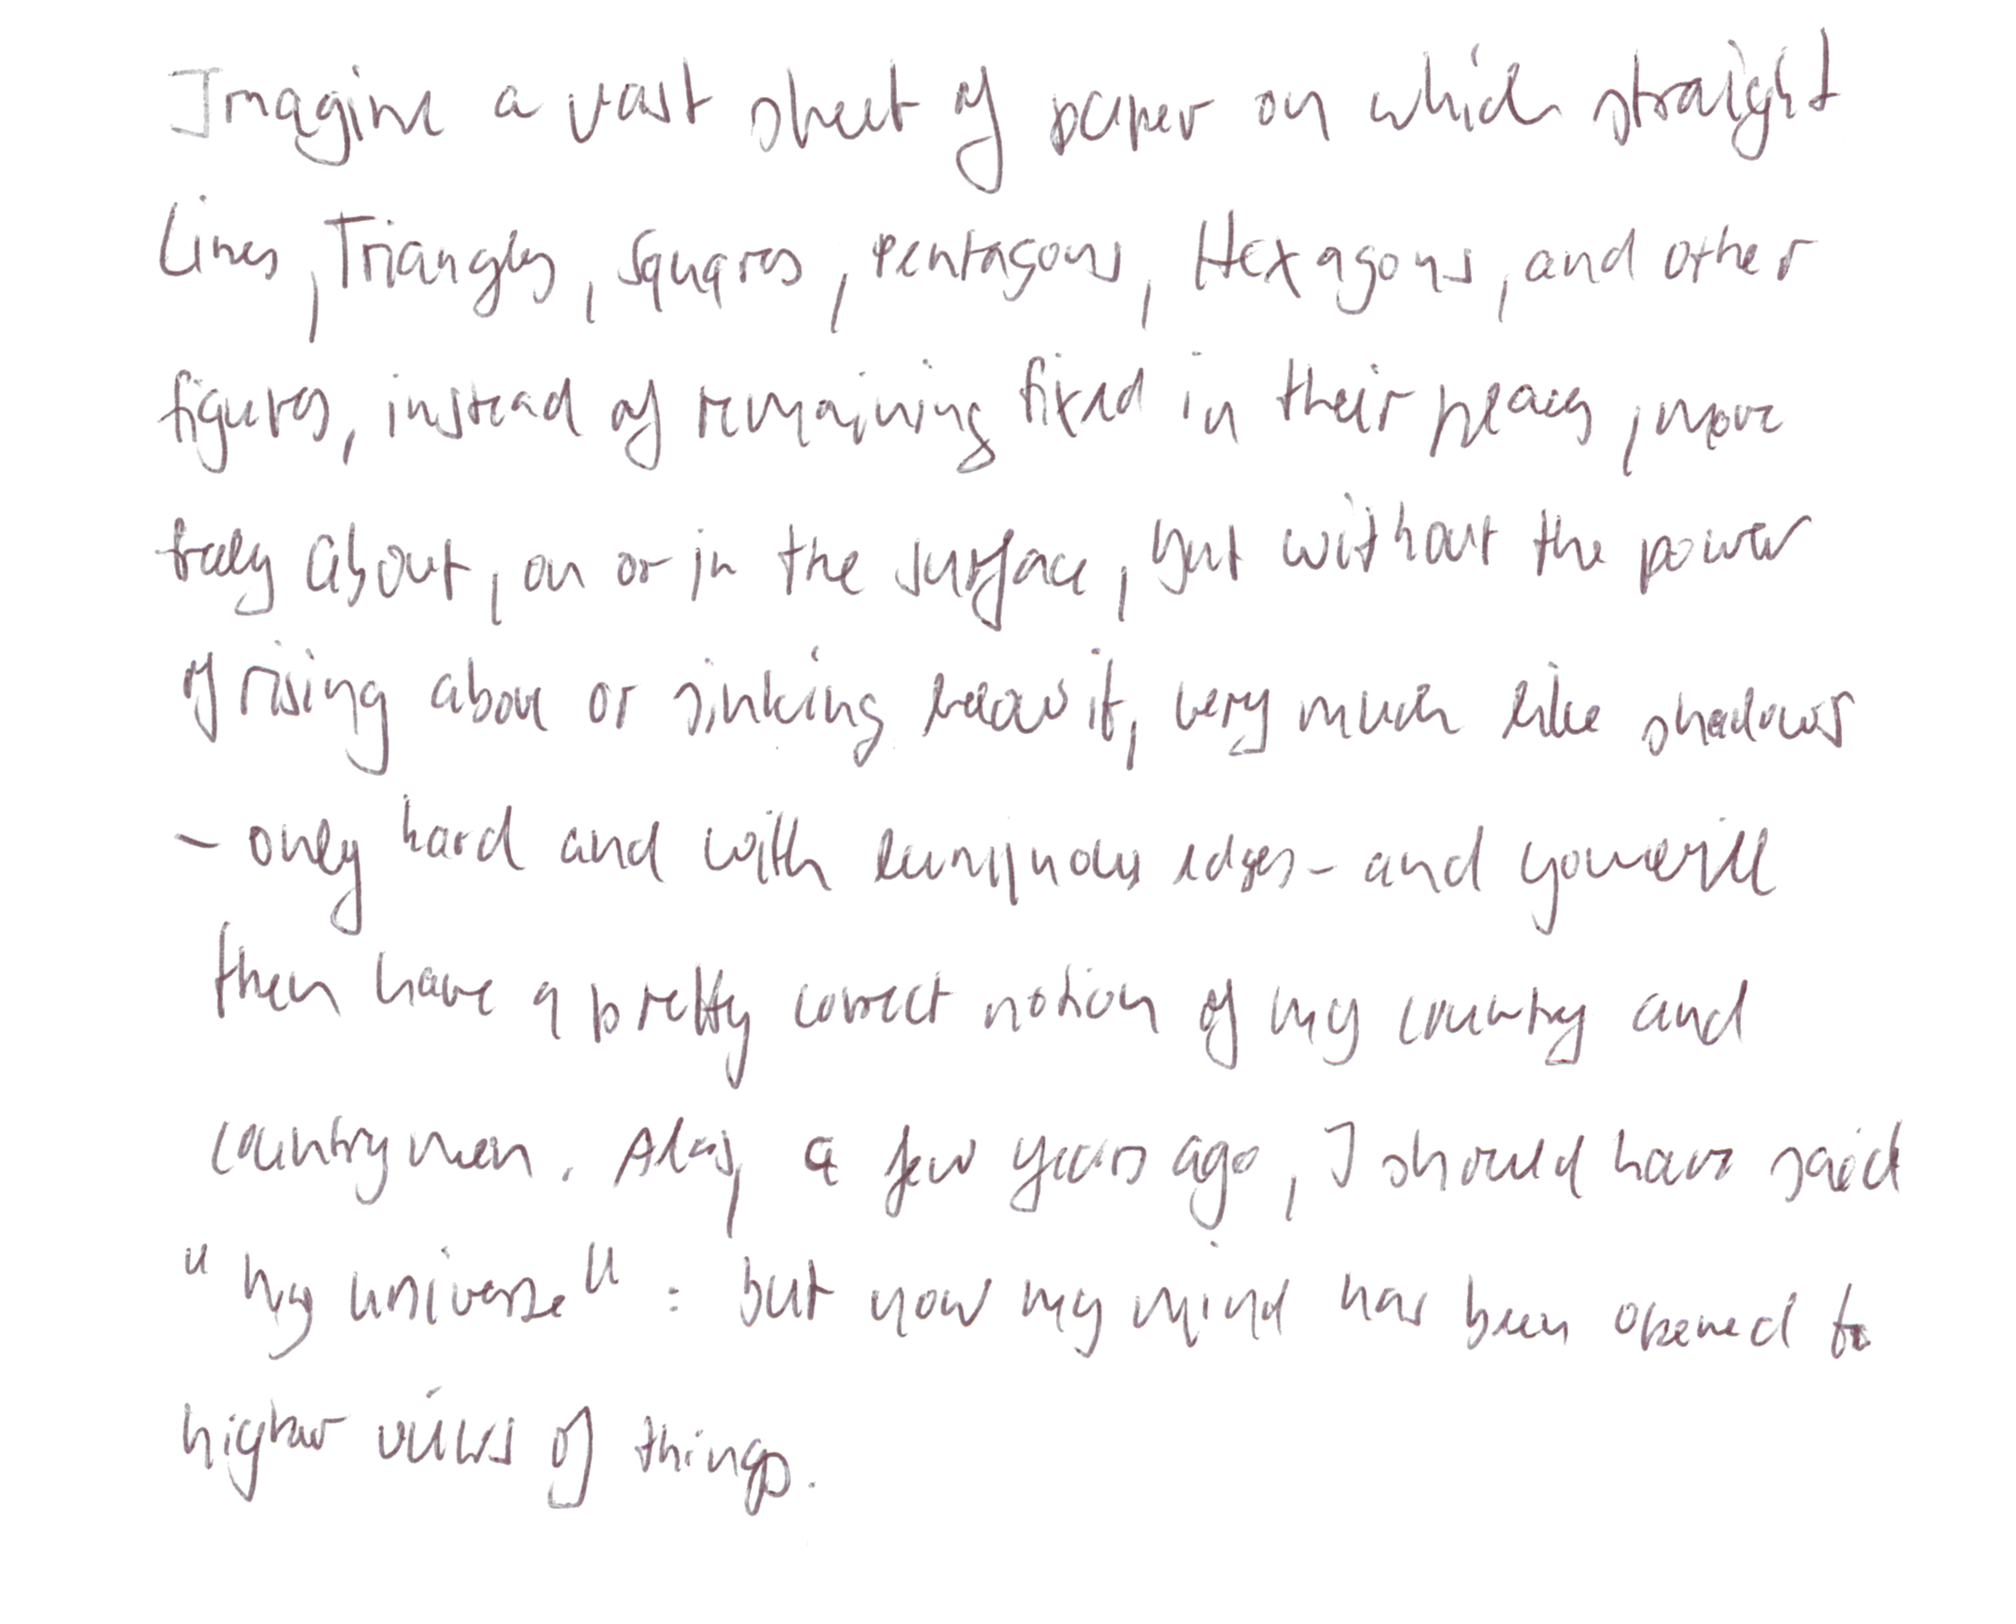 Imagine a vast sheet of paper on which straight
Lines, Triangles, Squares, Pentagons, Hexagons, and other
figures, instead of remaining fixed in their places, move
freely about, on or in the surface, but without the power
of rising above or sinking below it, very much like shadows
- only hard and with luminous edges - and you will
then have a pretty correct notion of my country and
countrymen. Alas, a few years ago, I should have said
"my universe": but now my mind has been opened to
higher views of things.